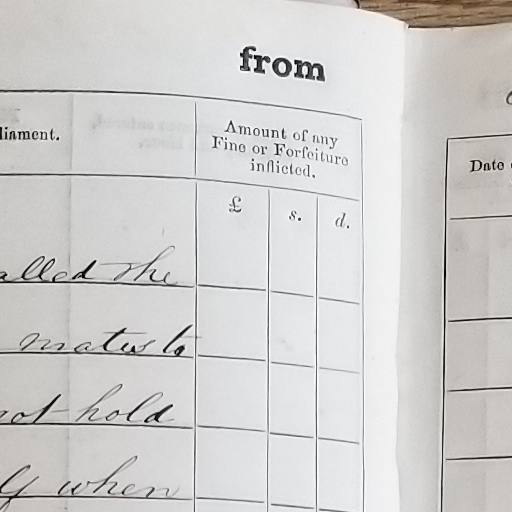 from
liament.
Amount of any
Fine or Forfeiture
inflicted.
Date
£ s. d.
alled the
mates to
not hold
when